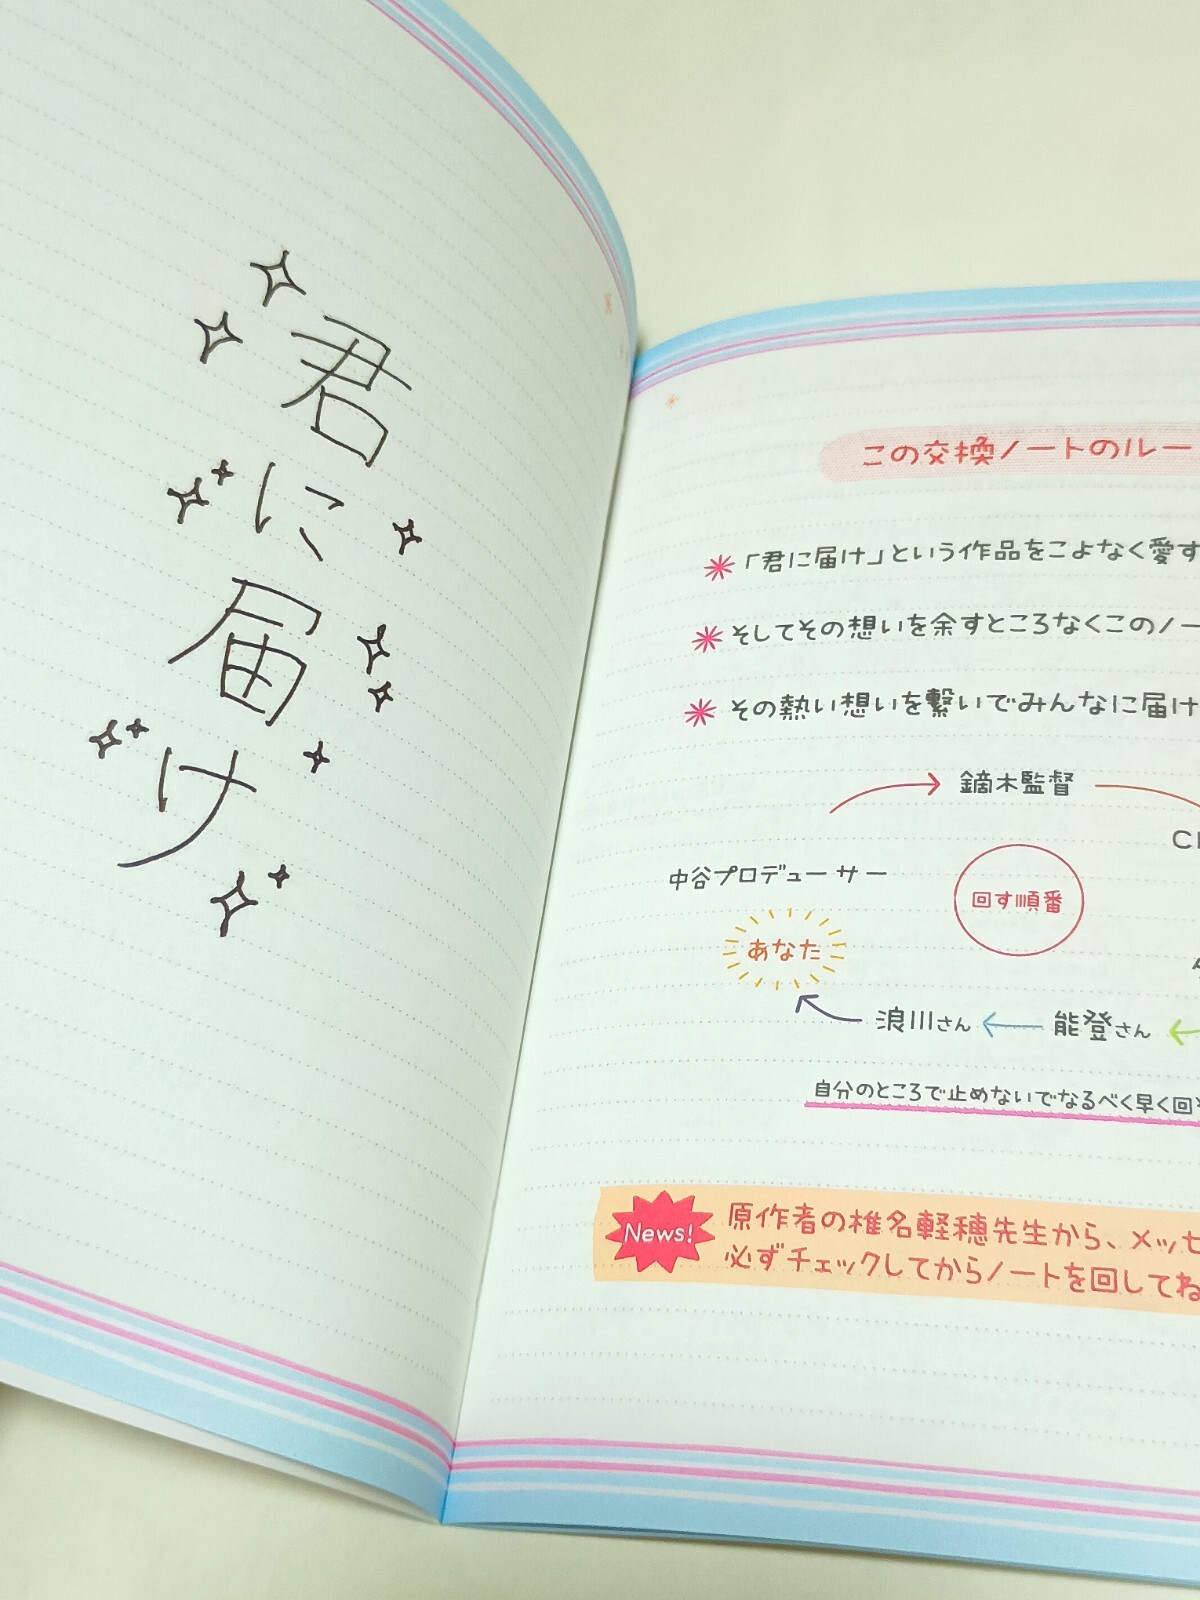 君に届け
この交換ノートのルー
「君に届け」という作品をこよなく愛す
そしてその想いを余すところなくこのノー
その熱い想いを繋いでみんなに届け
鏑木監督
中谷プロデューサー
回す順番
あなた
浪川さん
能登さん
自分のところで止めないでなるべく早く回
News!
原作者の椎名軽穂先生から、メッセ
必ずチェックしてからノートを回してね